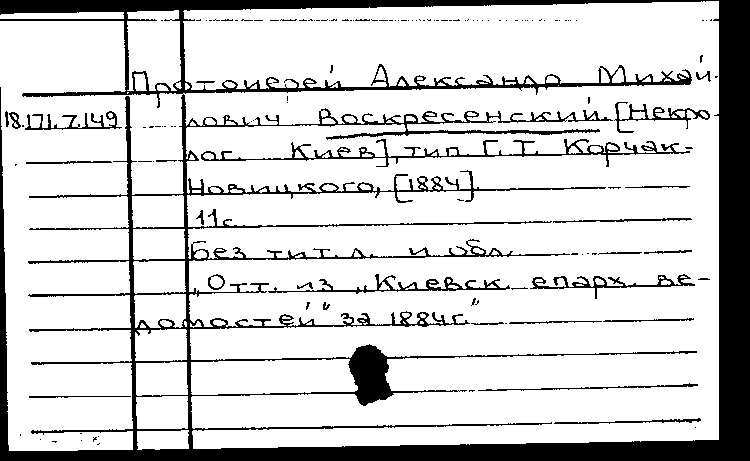 Протоиерей Александр Михай-
18.171.7.149 лович Воскресенский. [Некро-
лог. Киев], тип. Г. Т. Корчак-
Новицкого, [1884].
11 с.
Без тит. л. и обл.
„Отт. из „Киевск. епарх. ве-
домостей" за 1884 г."